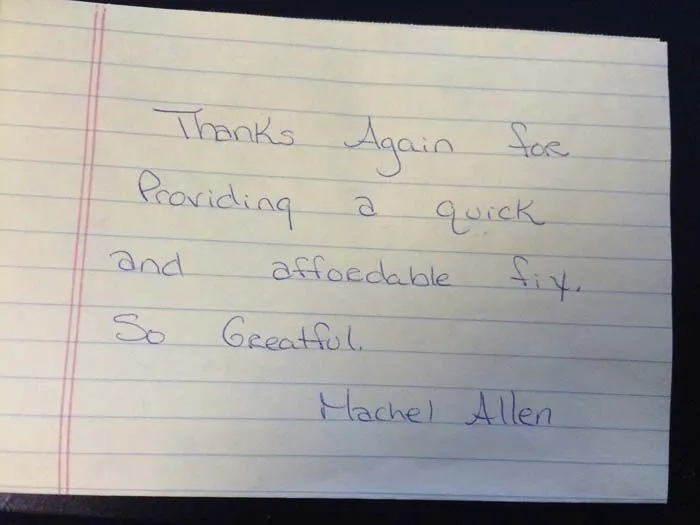 Thanks Again for
Providing a quick
and affordable fix.
So Greatful.
Machel Allen